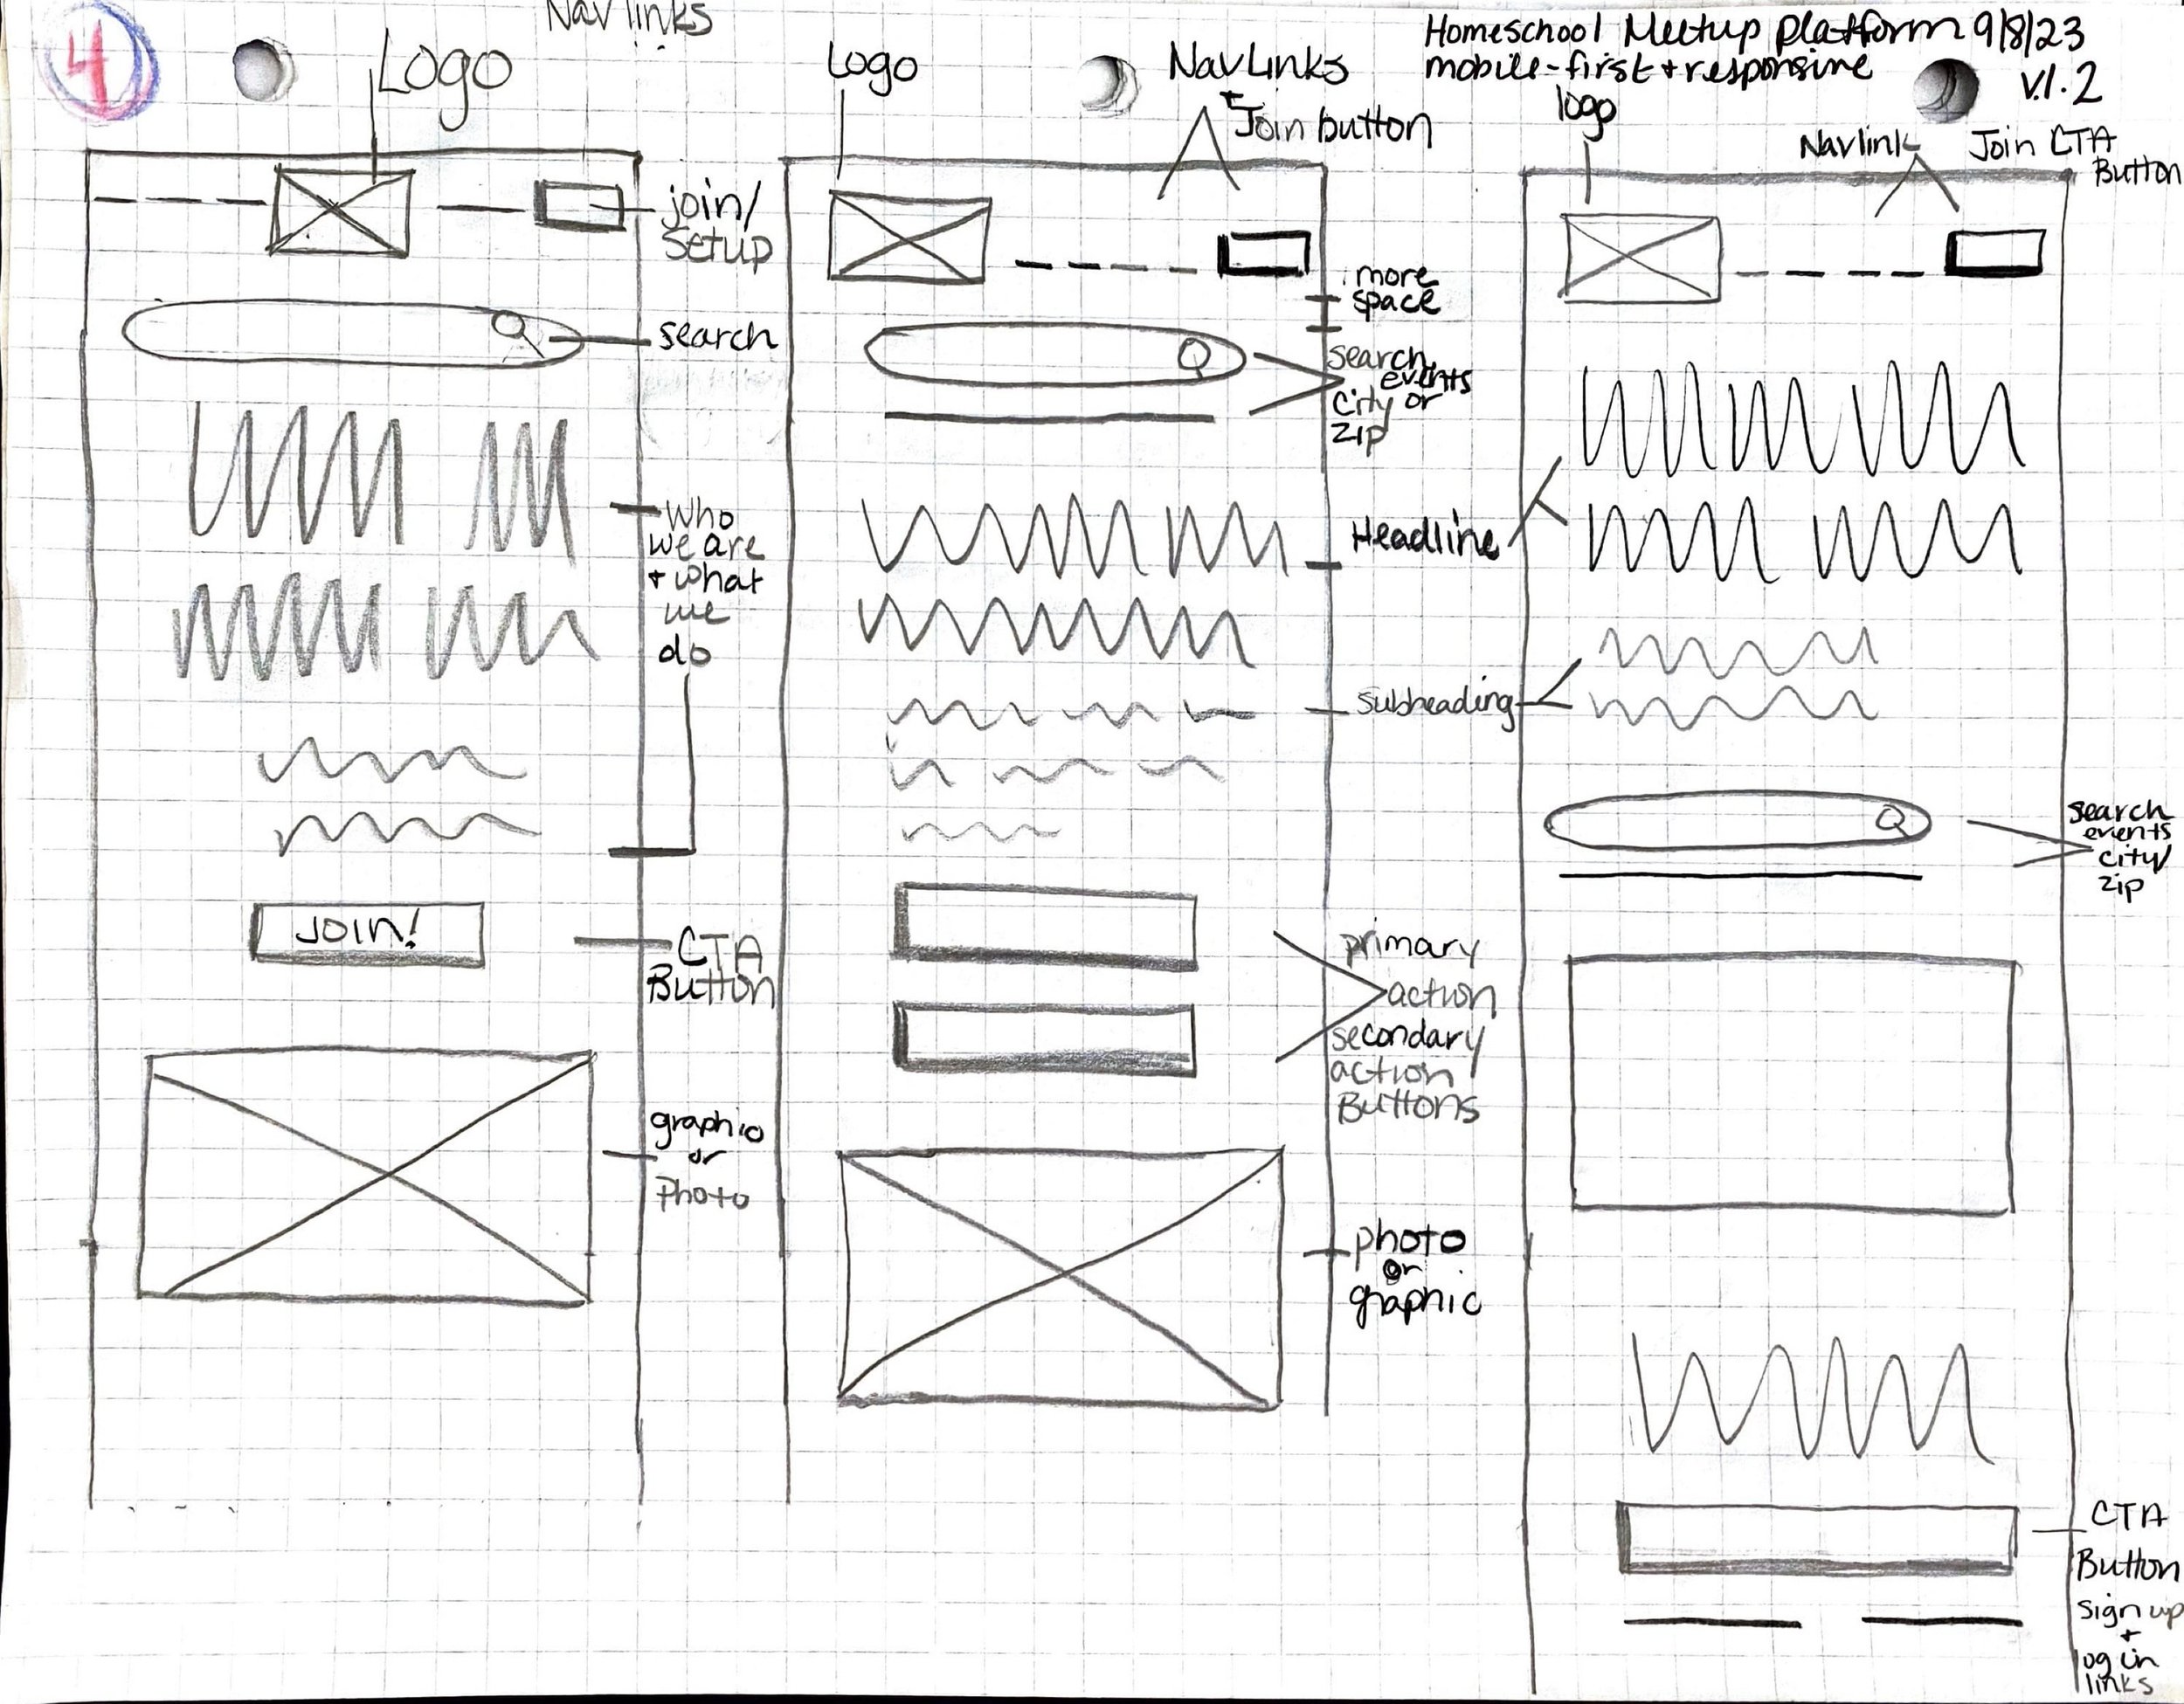 4
Nav links
Logo
join/
Setup
search
Who
we are
+ what
we
do
JOIN!
CTA
Button
graphic
or
Photo
Logo
NavLinks
+
Join button
more
space
search
events
City or
zip
Headline
subheading
primary
action
secondary
action
Buttons
photo
or
graphic
Homeschool Meetup Platform 9/8/23
mobile-first + responsive
v.1.2
logo
Navlink
Join CTA
Button
search
events
city/
zip
CTA
Button
sign up
+
log in
links